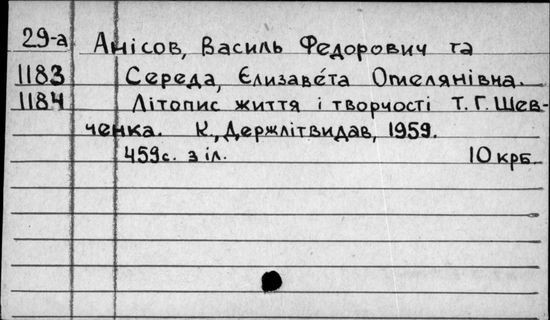 29-а Анісов, Василь Федорович та
1183 Середа, Єлизавета Омелянівна.
1184 Літопис життя і творчості Т. Г. Шев-
ченка. К., Держлітвидав, 1959.
459с. з іл. 10 крб.